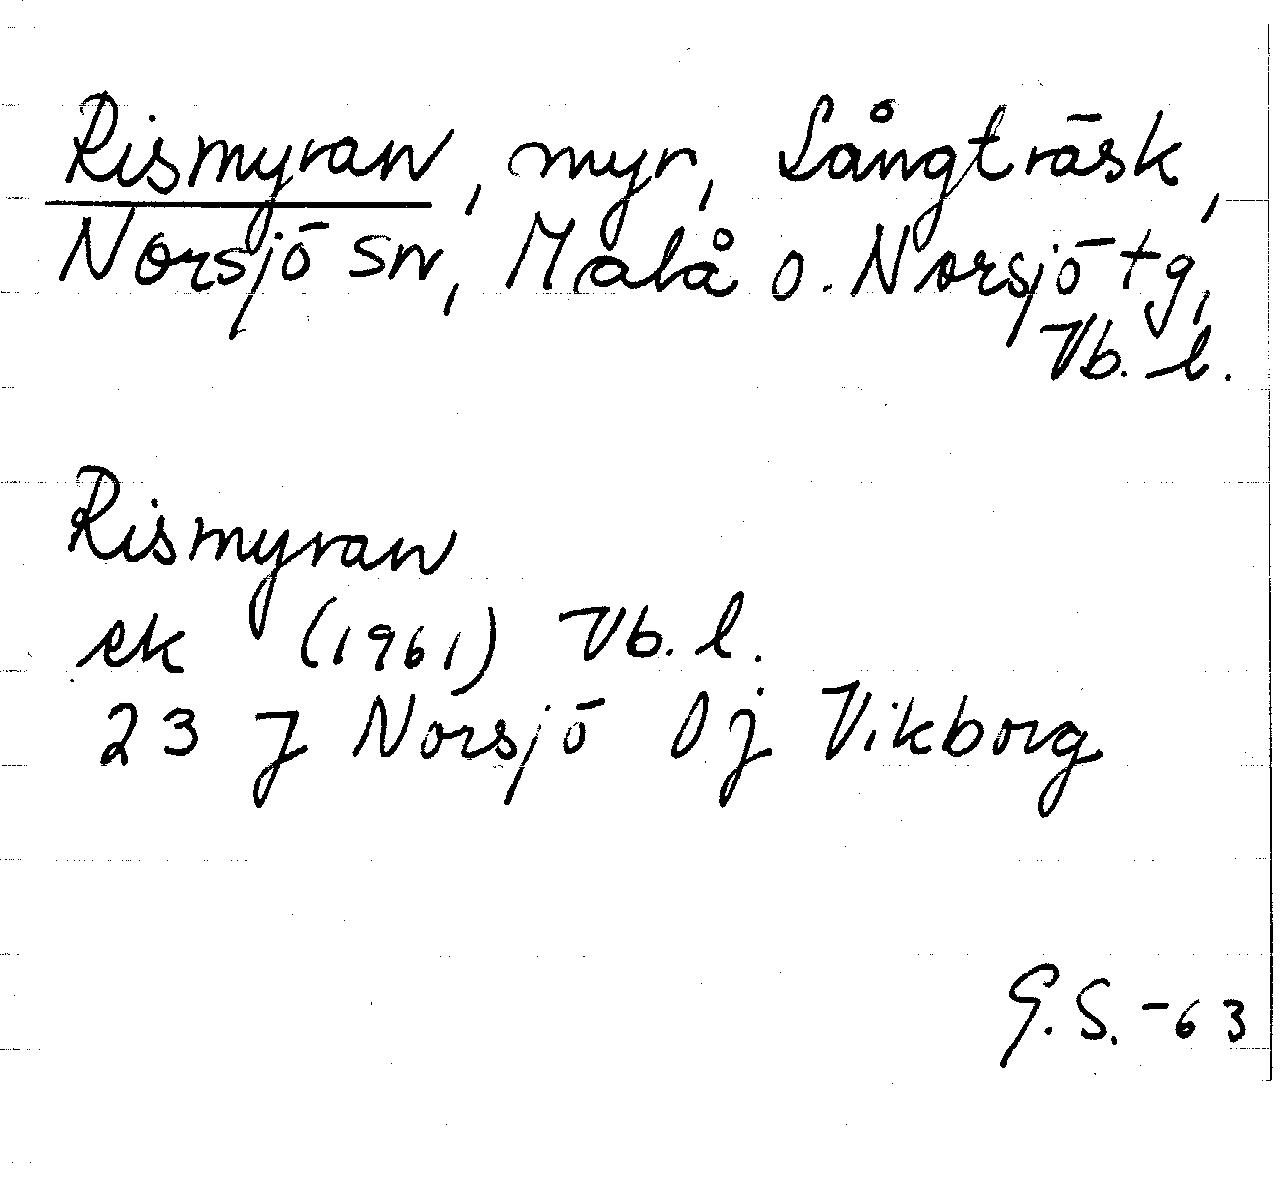 Rismyran, myr, Långträsk,
Norsjö sn, Malå o. Norsjö tg,
Vb. l.
Rismyran
ek (1961) Vb. l.
23 J Norsjö 0j Vikborg
G.S. -63